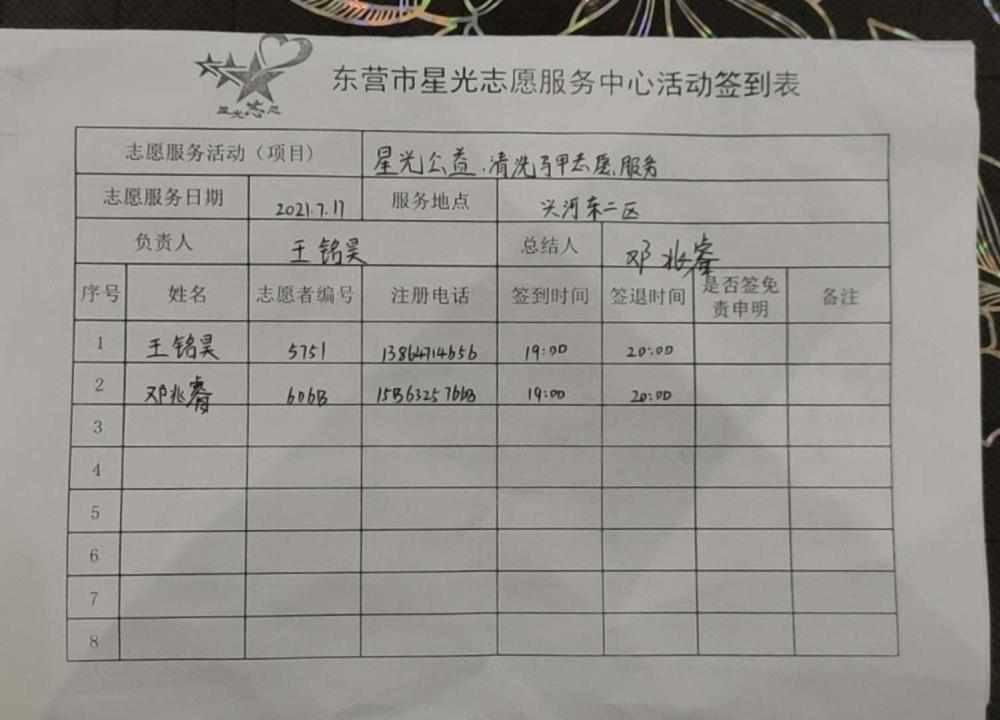 东营市星光志愿服务中心活动签到表
星光志愿
志愿服务活动（项目） 星光公益.清洗马甲志愿服务
志愿服务日期 2021.7.17 服务地点 兴河东二区
负责人 王铭昊 总结人 邓兆睿
序号 姓名 志愿者编号 注册电话 签到时间 签退时间 是否签免责申明 备注
1 王铭昊 5751 13864714656 19:00 20:00
2 邓兆睿 6068 19:00 20:00
3
4
5
6
7
8